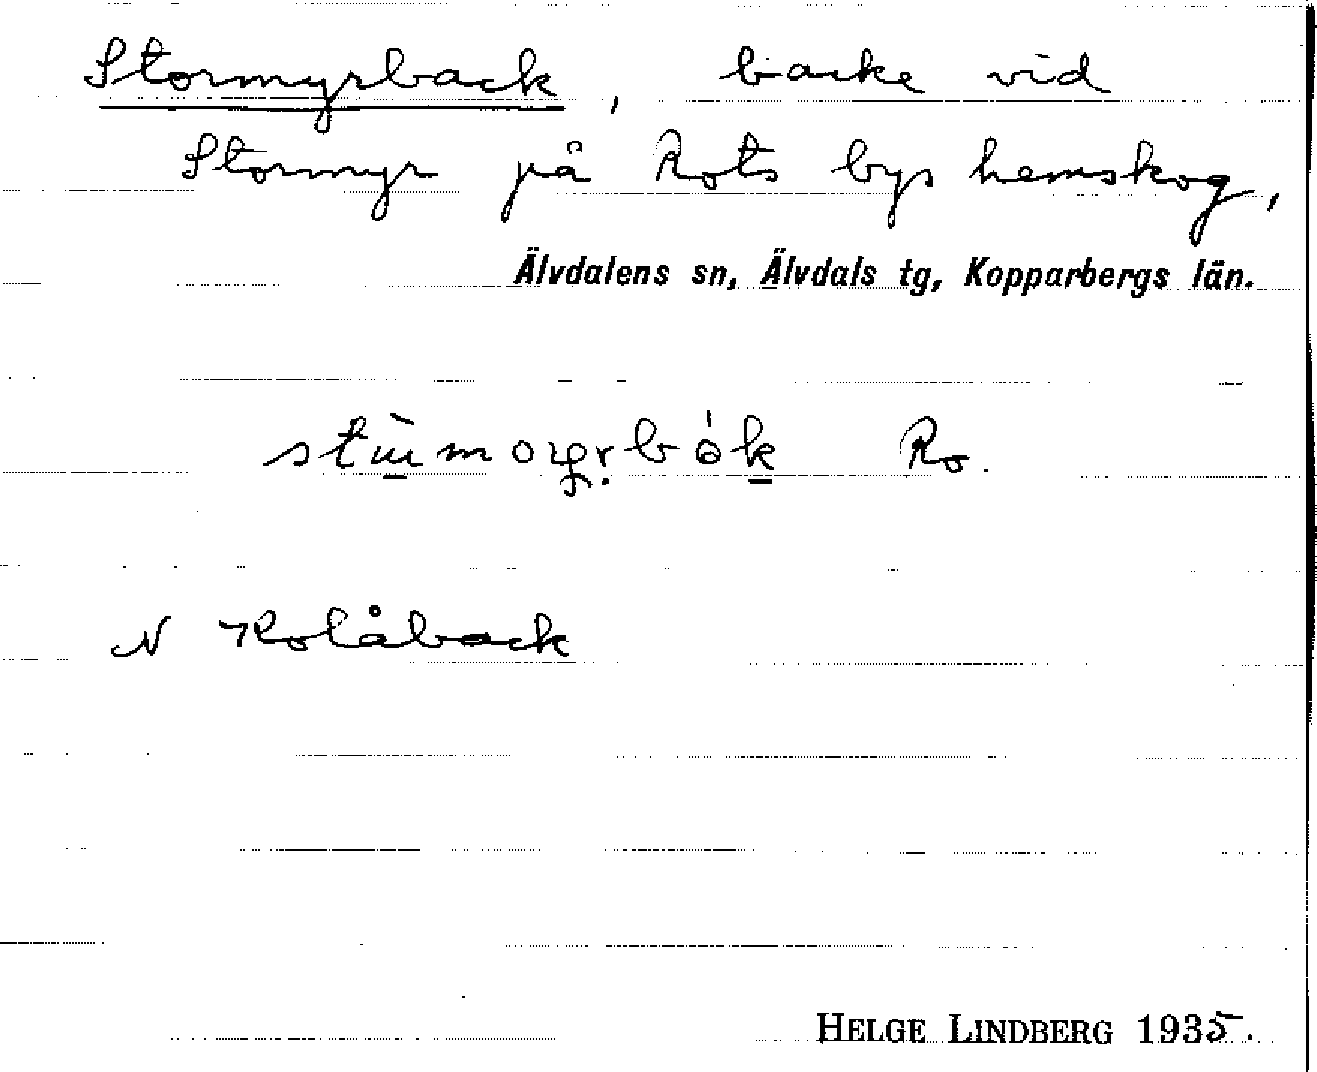 Stormyrback, backe vid
Stormyr på Rots bys hemskog,
Älvdalens sn, Älvdals tg, Kopparbergs län.
Ro.
N Kolåback
HELGE LINDBERG 1935.